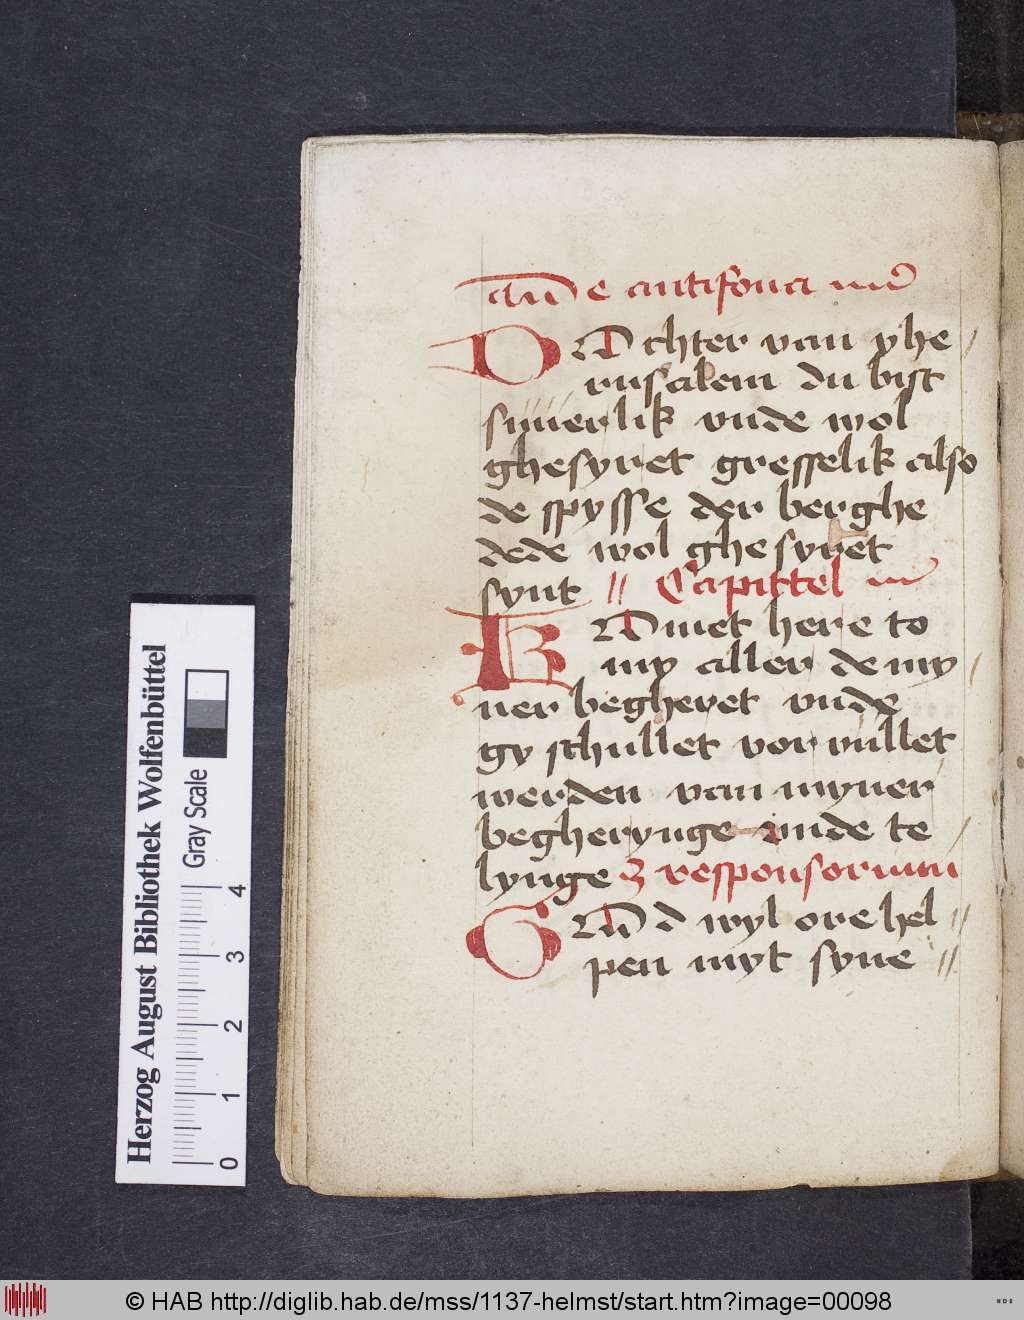 ame antifona iiii
DOchter van yhe
rusalem du bist
suuerlik vnde wol
ghesyret gresselik also
de spysse der berghe
dede wol ghesyret
synt // Capittel iiii
KOmet here to
my aller de my
ner begheret vnde
gy schullet vorvullet
werden van myner
begherynge vnde te
lynge responsorium
GOd wyl ore hel
pen myt syne
Herzog August Bibliothek Wolfenbüttel
Gray Scale
0 1 2 3 4
© HAB http://diglib.hab.de/mss/1137-helmst/start.htm?image=00098